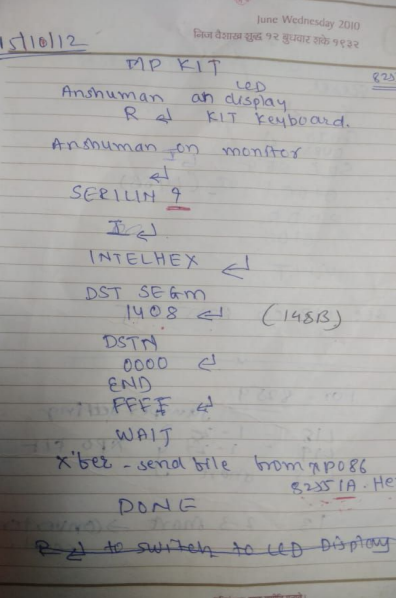 June Wednesday 2010
निज वैशाख शुद्ध १२ बुधवार शके १९३२
15/10/12
MP KIT
825
LED
Anshuman on display
R ↵ KIT Keyboard.
Anshuman on monitor
↵
SERILIN 9
I ↵
INTELHEX ↵
DST SEGM
1408 ↵ (148B)
DSTN
0000 ↵
END
FFFF ↵
WAIT
X'fer - send file from XP086
82551A. He
DONE
R ↵ to switch to LED Display